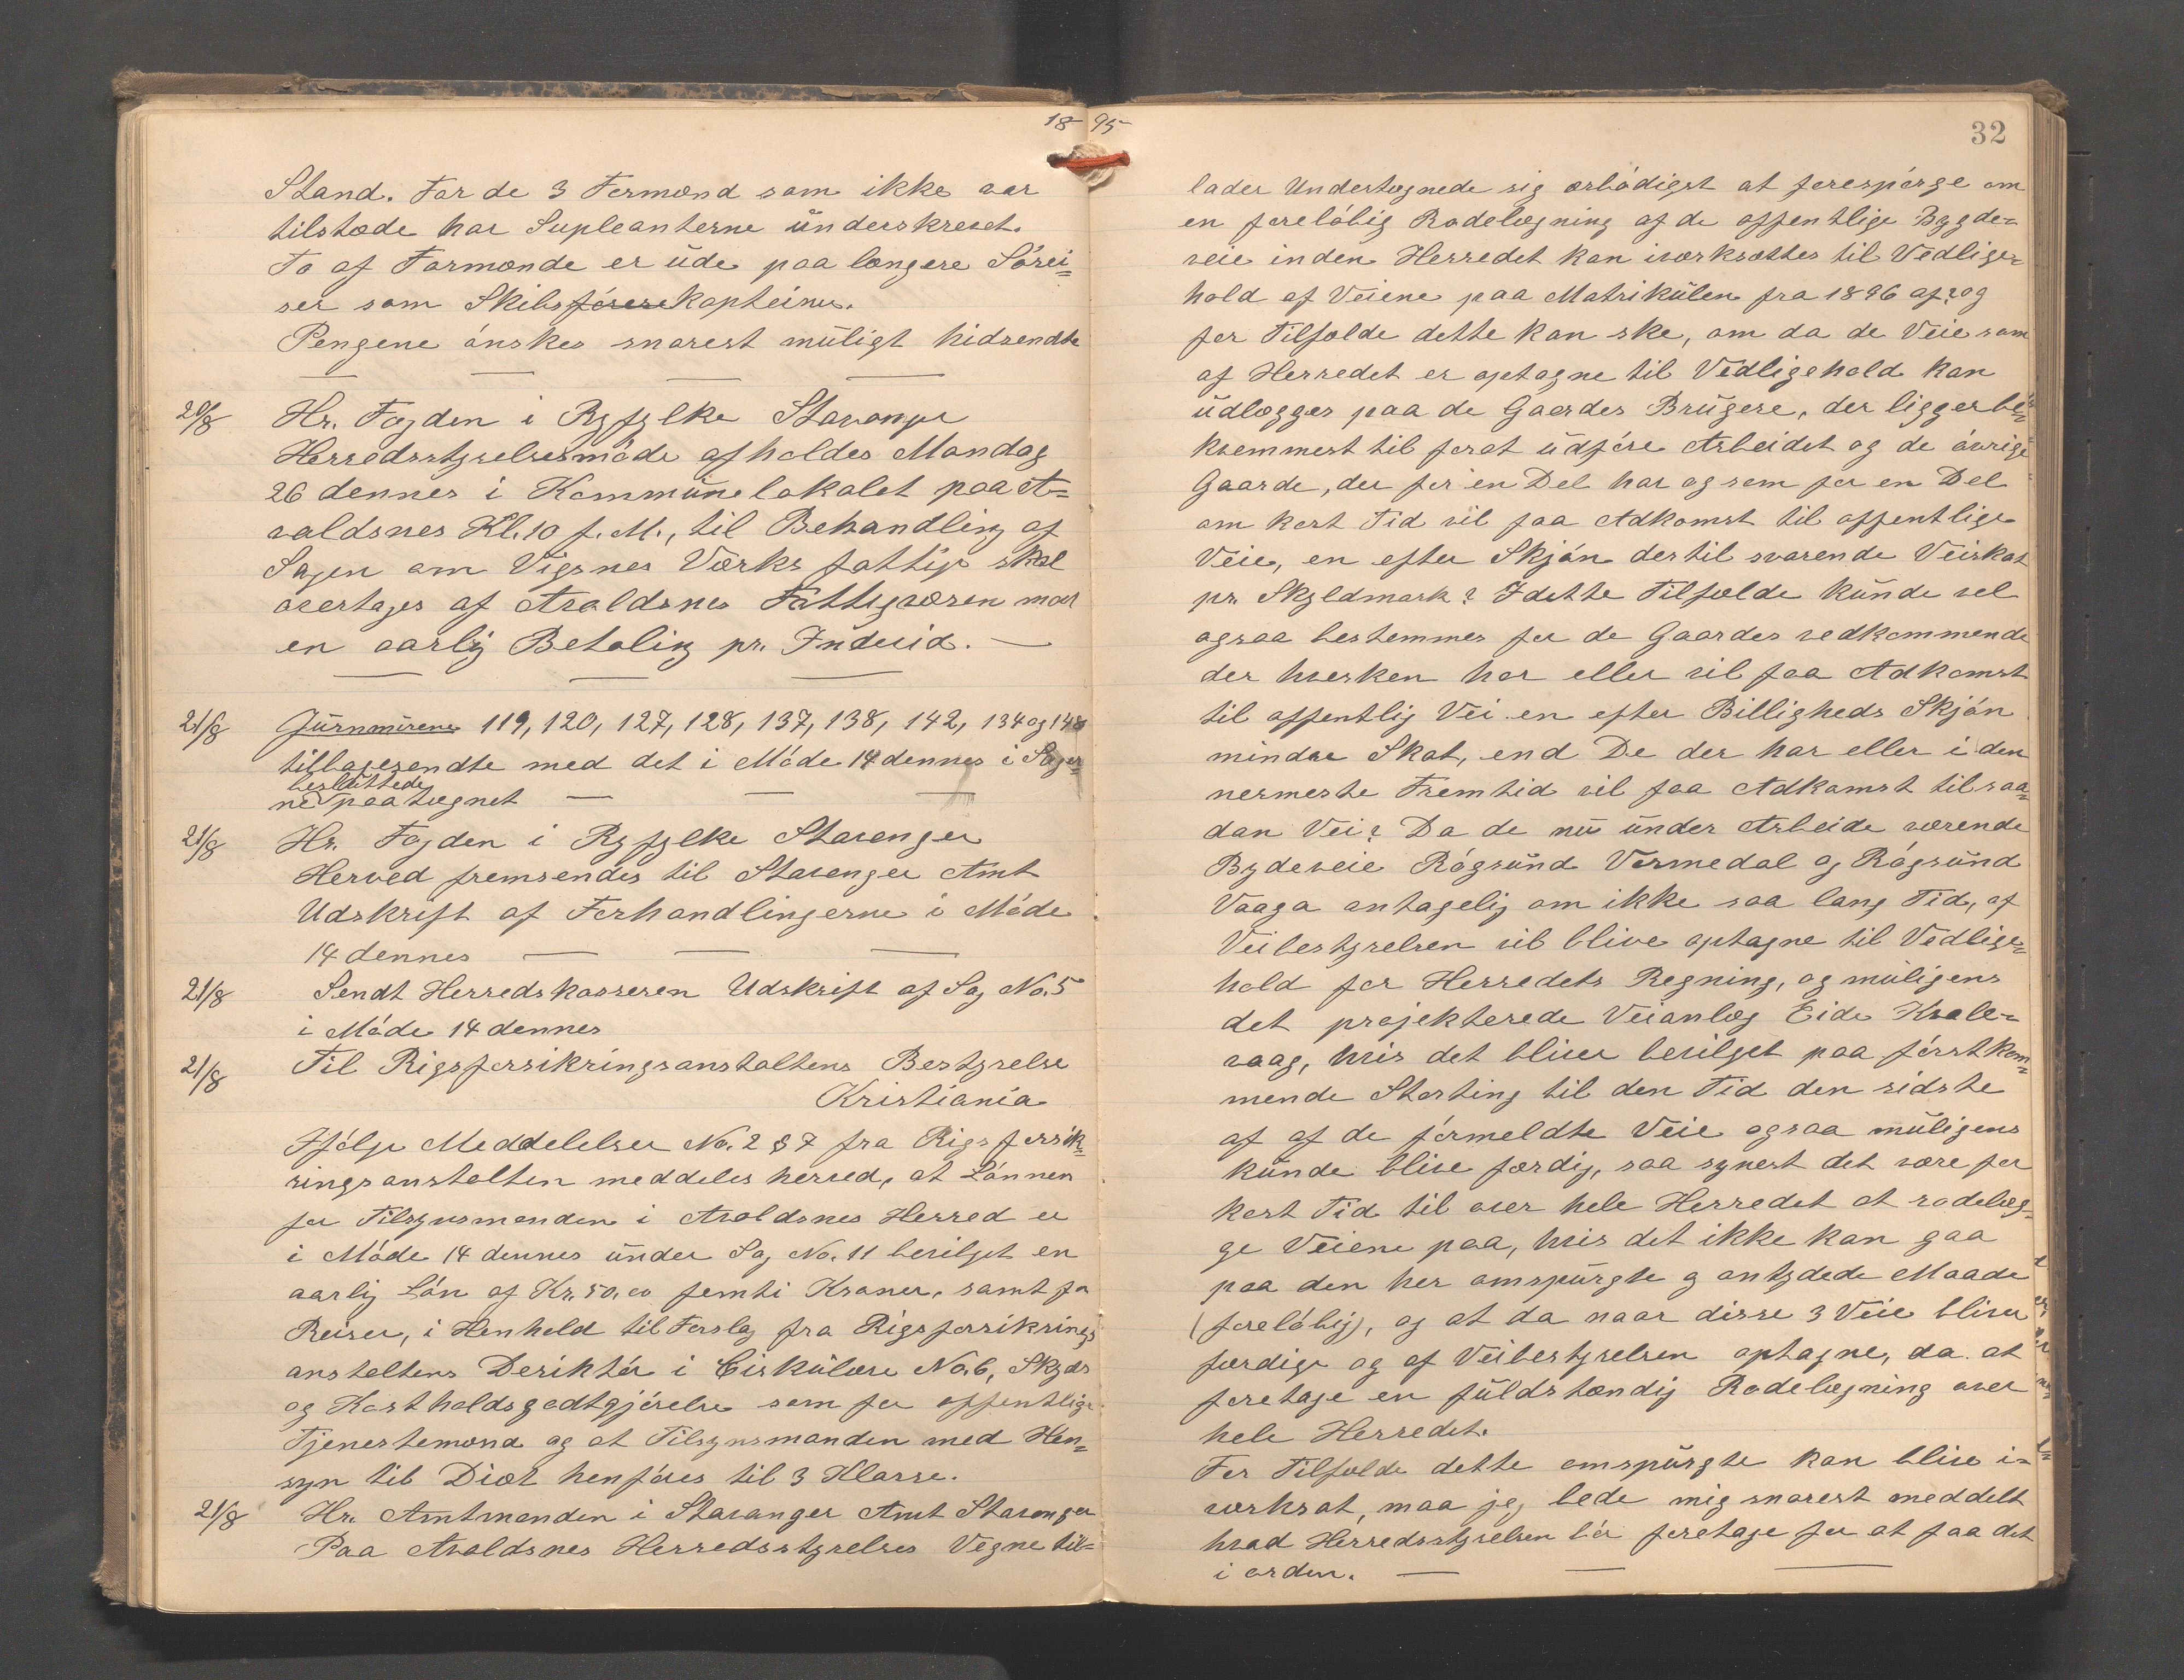 18 95
32
Stand. For de 3 Formænd som ikke var
tilstæde har Supleanterne underskrevet.
To af Formænde er ude paa længere Sörei=
ser som Skibsförere Kapteiner.
Pengene önskes snarest muligt hidsendte
20/8 Hr. Fogden i Ryfylke Stavanger
Herredsstyrelsesmöde afholdes Mandag
26 dennes i Kommunelokalet paa A=
valdsnes Kl. 10 f. M., til Behandling af
Sagen om Vigsnes Værks fattige skal
overtages af Avaldsnes Fattigvæsen mod
en aarlig Betaling pr. Individ. —
21/8 Jurnmrene 119, 120, 127, 128, 137, 138, 142, 134 og 148
tilbagesendte med det i Möde 14 dennes i Sager=
besluttede
ne paategnet
21/8 Hr. Fogden i Ryfylke Stavanger
Herved fremsendes til Stavanger Amt
Udskrift af Forhandlingerne i Möde
14 dennes
21/8 Sendt Herredskasseren Udskrift af Sag No. 5
i Möde 14 dennes
21/8 Til Rigsforsikringsanstaltens Bestyrelse
Kristiania
Ifölge Meddelelser No. 2 & 7 fra Rigsforsik=
ringsanstalten meddeles herved, at Lönnen
for Tilsynsmanden i Avaldsnes Herred er
i Möde 14 dennes under Sag No. 11 bevilget en
aarlig Lön af Kr. 50,00 femti Kroner, samt for
Reiser, i Henhold til Forslag fra Rigsforsikrings
anstaltens Deriktör i Cirkulære No. 6, Skyds
og Kostholdsgodtgjörelse som for offentlige
Tjenestemænd og at Tilsynsmanden med Hen=
syn til Diæt henföres til 3 Klasse.
21/8 Hr. Amtmanden i Stavanger Amt Stavanger
Paa Avaldsnes Herredsstyrelses Vegne til=
lader Undertegnede sig ærbödigst at forespörge om
en forelöbig Rodelægning af de offentlige Bygde=
veie inden Herredet kan iværksættes til Vedlige=
hold af Veiene paa Matrikülen fra 1896 af? og
for Tilfælde dette kan ske, om da de Veie som
af Herredet er optagne til Vedligehold kan
udlægges paa de Gaardes Brugere, der ligger be=
kvemmest til forat udföre Arbeidet og de övrige
Gaarde, der for en Del har og som for en Del
om kort Tid vil faa Adkomst til offentlige
Veie, en efter Skjön dertil svarende Veiskat
pr. Skyldmark? I dette Tilfælde kunde vel
ogsaa bestemmes for de Gaardes vedkommende
der hverken har eller vil faa Adkomst
til offentlig Vei en efter Billigheds Skjön
mindre Skat, end De der har eller i den
nermeste Fremtid vil faa Adkomst til saa=
dan Vei? Da de nu under Arbeide værende
Bydeveie Rögsund Vormedal og Rögsund
Vaaga antagelig om ikke saa lang Tid, af
Veibestyrelsen vil blive optagne til Vedlige=
hold for Herredets Regning, og muligens
det projekterede Veianlæg Eide Kvale=
vaag, hvis det bliver bevilget paa förstkom=
mende Storting til den Tid den sidste
af af de förmeldte Veie ogsaa muligens
kunde blive færdig, saa synest det være for
kort Tid til over hele Herredet at rodelæg=
ge Veiene paa, hvis det ikke kan gaa
paa den her omspurgte og antydede Maade
(forelöbig), og at da naar disse 3 Veie bliver
færdige og af Veibestyrelsen optagne, da at
foretage en fuldstændig Rodelægning over
hele Herredet.
For Tilfælde dette omspurgte kan blive i=
værksat, maa jeg bede mig snarest meddelt
hvad Herredsstyrelsen bör foretage for at faa det
i orden.